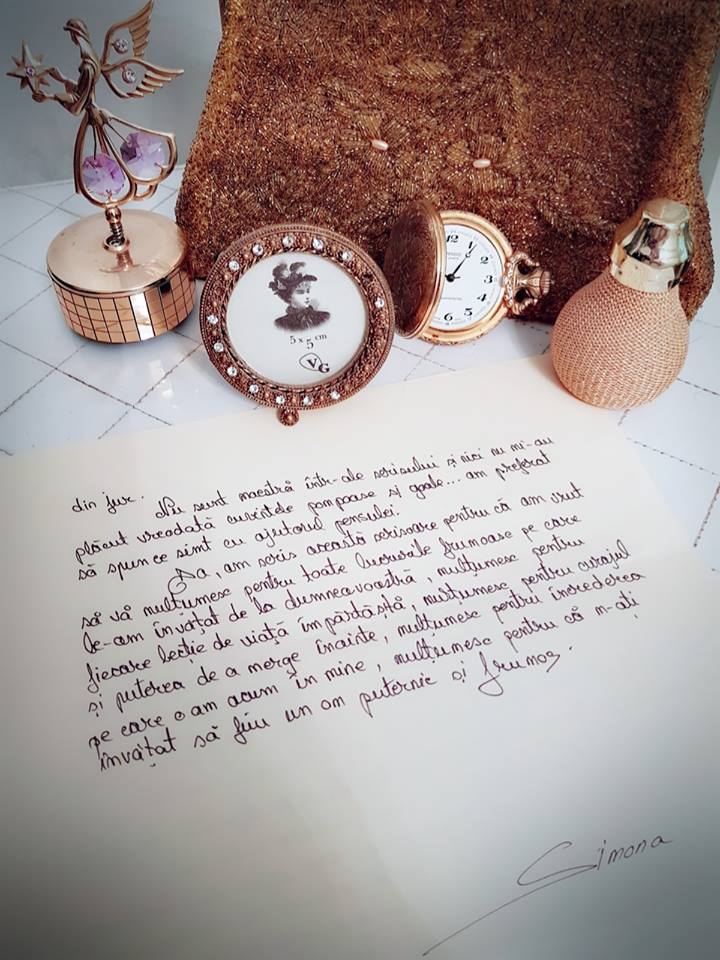 12
6
5
5 x 5 cm
VG
din jur. Nu sunt maestră într-ale scrisului și nici nu mi-au
plăcut vreodată cuvintele pompoase și goale... am preferat
să spun ce simt cu ajutorul pensulei.
Da, am scris această scrisoare pentru că am vrut
să vă mulțumesc pentru toate lucrurile frumoase pe care
le-am învățat de la dumneavoastră, mulțumesc pentru
fiecare lecție de viață împărtășită, mulțumesc pentru curajul
și puterea de a merge înainte, mulțumesc pentru încrederea
pe care o am acum în mine, mulțumesc pentru că m-ați
învățat să fiu un om puternic și frumos.
Simona